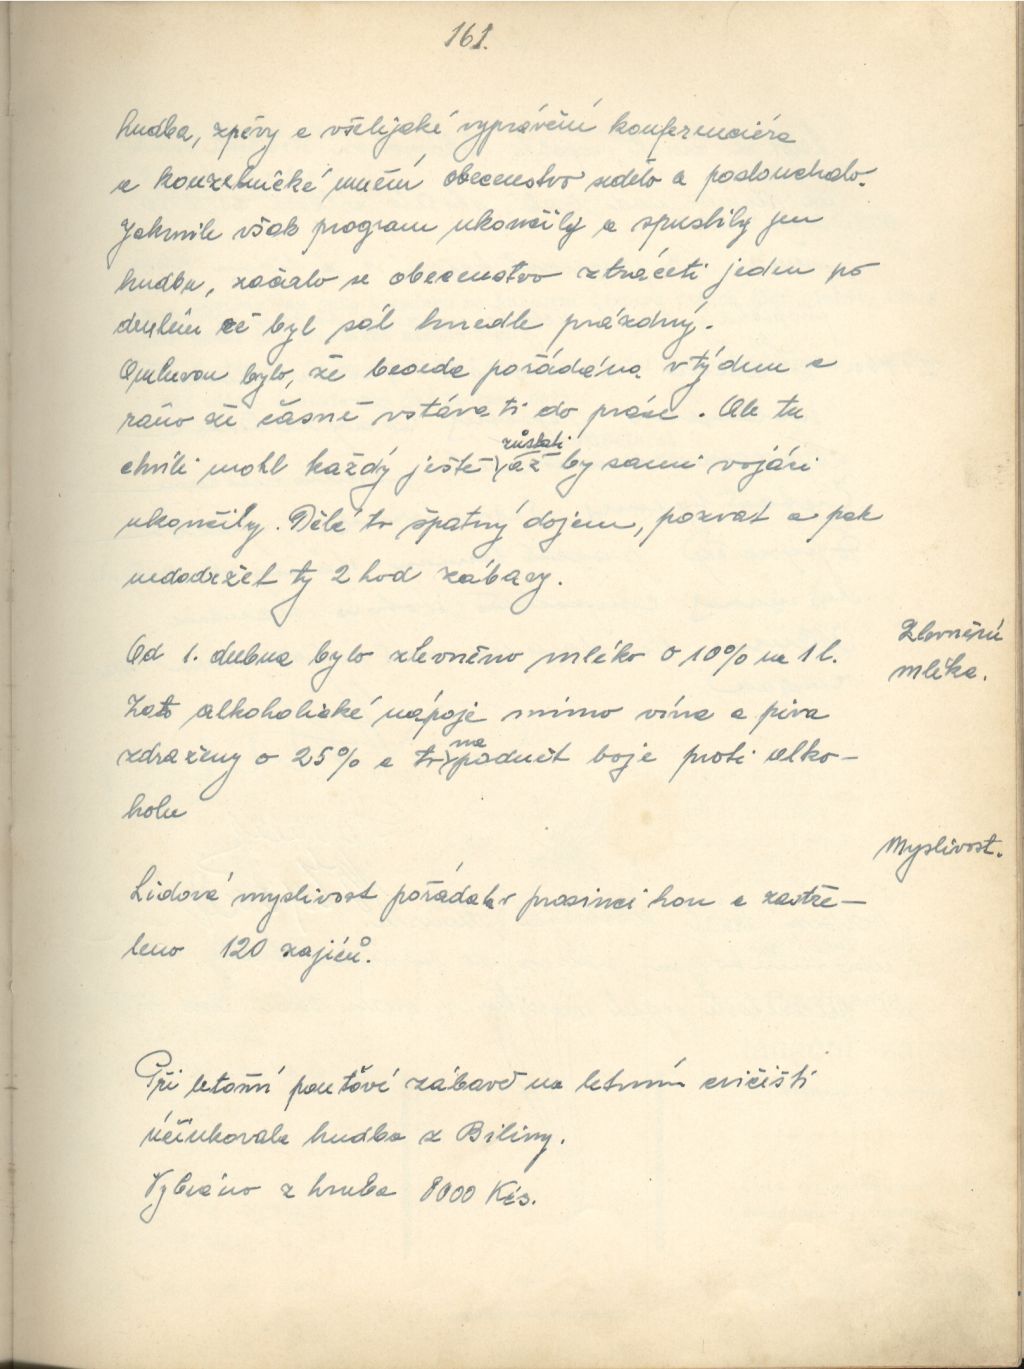 161.
hudba, zpěvy a všelijaké vyprávění konferenciéra
a kouzelnické umění obecenstvo sedělo a poslouchalo.
Jakmile však program ukončily a spustily jen
hudbu, začalo se obecenstvo ztráceti jeden po
druhém že byl sál hnedle prázdný.
Omluvou bylo, že beseda pořádána v týdnu a
ráno že časně vstávati do práce. Ale tu
chvíli mohl každý ještě zůstati až by sami vojáci
ukončily. Dělá to špatný dojem, pozvat a pak
nedodržet ty 2 hod zábavy.
Zlevnění
mléka.
Od 1. dubna bylo zlevněno mléko o 10% na 1 l.
Zato alkoholické nápoje mimo vína a piva
zdraženy o 25% a to na podnět boje proti alko-
holu
Myslivost.
Lidová myslivost pořádala v prosinci hon a zastře-
leno 120 zajíců.
Při letošní pouťové zábavě na letním cvičišti
účinkovala hudba z Biliny.
Vybráno z hruba 8000 Kčs.